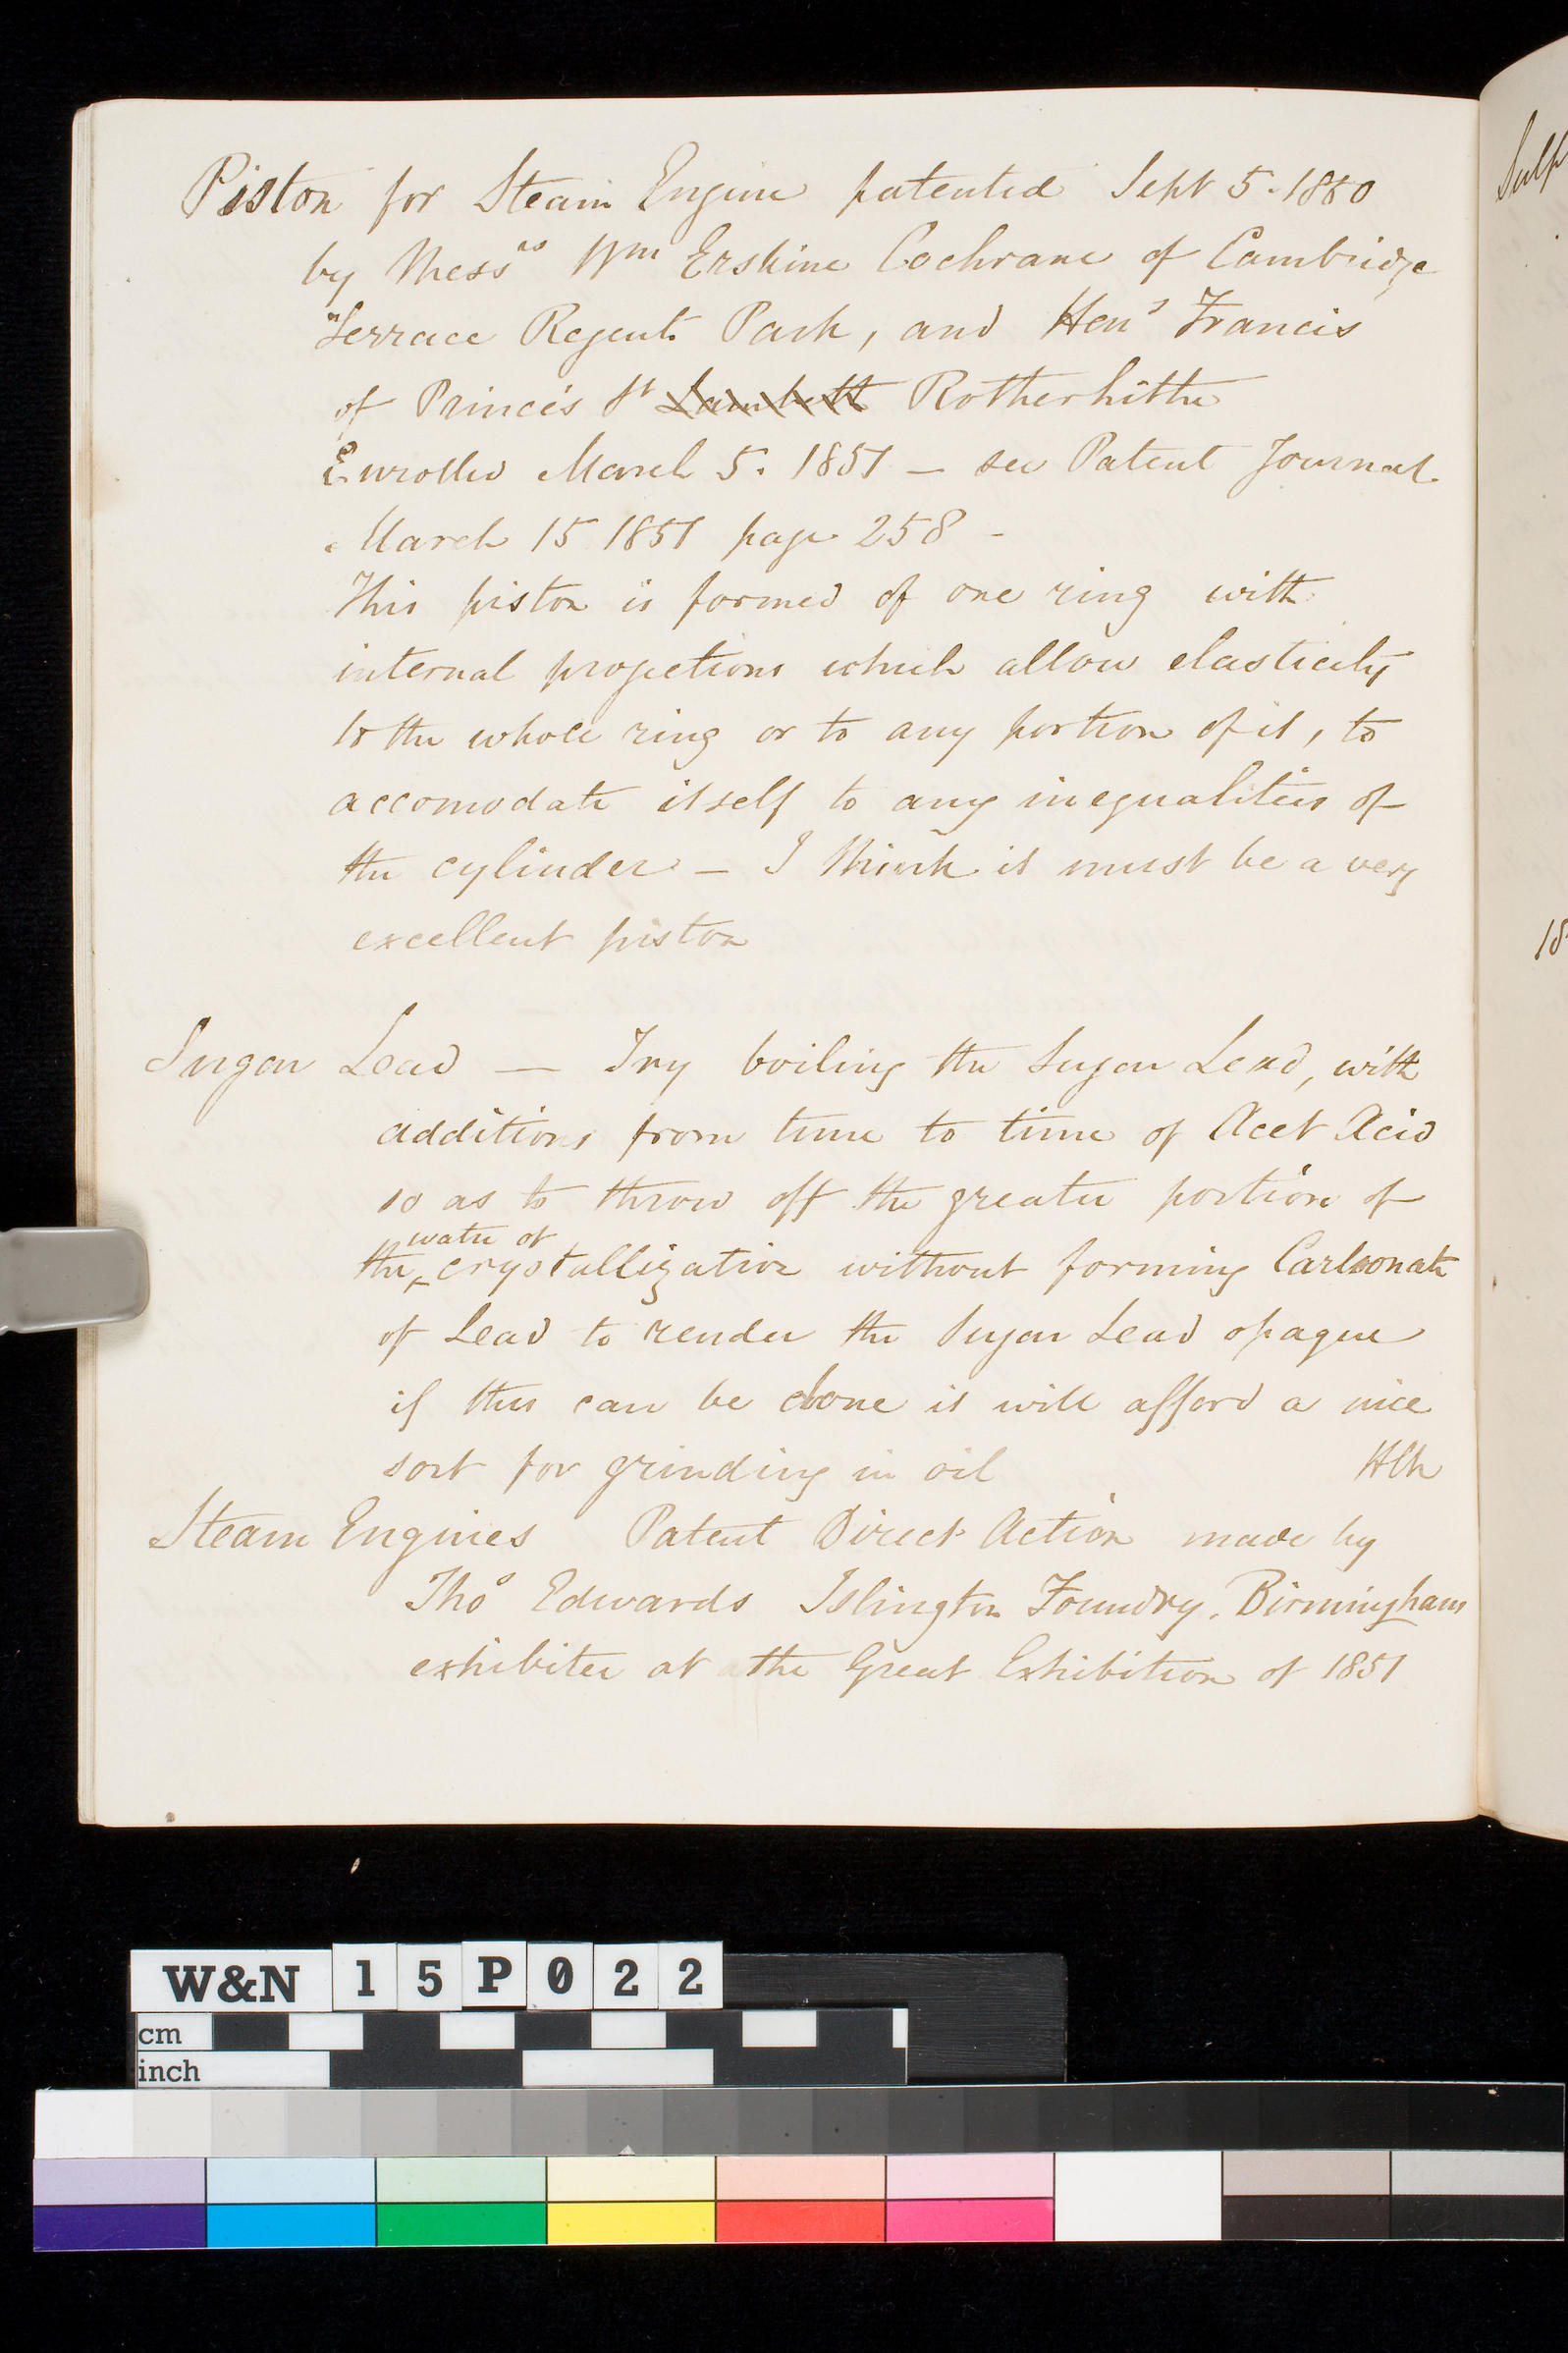 Piston for Steam Engine patented Sept 5. 1850
by Mess.rs Wm Erskine Cochrane of Cambridge
Terrace Regents Park, and Hen.y Francis
of Prince's St Lambeth Rotherhithe
Enrolled March 5. 1851 – see Patent Journal
March 15 1851 page 258 –
This piston is formed of one ring with
internal projections which allow elasticity
to the whole ring or to any portion of it, to
accomodate itself to any inequalities of
the cylinder – I think it must be a very
excellent piston
Sugar Lead — Try boiling the Sugar Lead, with
additions from time to time of Acet Acid
so as to throw off the greater portion of
water of
the crystallization without forming Carbonate
of Lead to render the Sugar Lead opaque
if this can be done it will afford a nice
sort for grinding in oil HCN
Steam Engines Patent Direct Action made by
Thos Edwards Islington Foundry, Birmingham
exhibiter at the Great Exhibition of 1851
Sulp
18
W&N 15P022
cm
inch